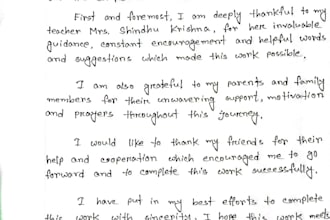 First and foremost, I am deeply thankful to my
teacher Mrs. Shindhu Krishna, for her invaluable
guidance, constant encouragement and helpful words
and suggestions which made this work possible.
I am also grateful to my parents and family
members for their unwavering support, motivation
and prayers throughout this journey.
I would like to thank my friends for their
help and cooperation which encouraged me to go
forward and to complete this work successfully.
I have put in my best efforts to complete
this work with sincerity. I hope this work meets